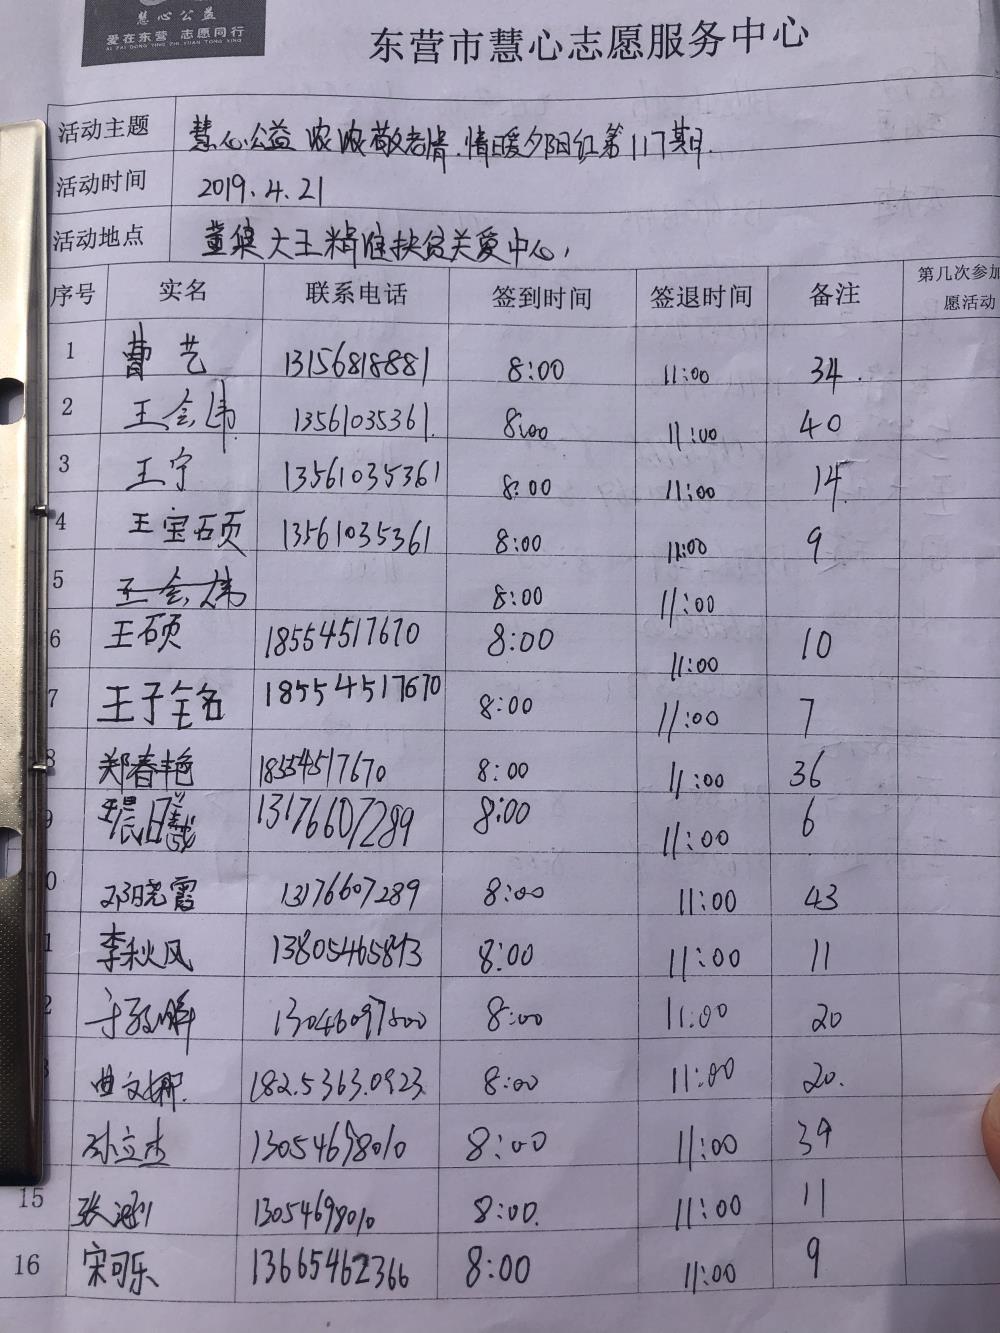 慧心公益
爱在东营 志愿同行
AI ZAI DONG YING ZHI YUAN TONG XING
东营市慧心志愿服务中心
活动主题 慧心公益 浓浓敬老情.情暖夕阳红第117期.
活动时间 2019.4.21
活动地点 董集大王精准扶贫关爱中心,
序号 实名 联系电话 签到时间 签退时间 备注 第几次参加
愿活动
1 曹艺 13156818881 8:00 11:00 34
2 王会伟 13561035361 8:00 11:00 40
3 王宁 13561035361 8:00 11:00 14
4 王宝硕 13561035361 8:00 11:00 9
5 王会伟 8:00 11:00
6 王硕 18554517670 8:00 11:00 10
7 王子铭 18554517670 8:00 11:00 7
8 郑春艳 18554517670 8:00 11:00 36
9 晨曦 13176607289 8:00 11:00 6
0 邓晓霞 13176607289 8:00 11:00 43
1 李秋风 13805465893 8:00 11:00 11
2 13046097500 8:00 11:00 20
3 曲文娜. 182.5363.0923 8:00 11:00 20.
孙立杰 13054698010 8:00 11:00 39
15 张涵 13054698010 8:00. 11:00 11
16 宋可乐 13665462366 8:00 11:00 9